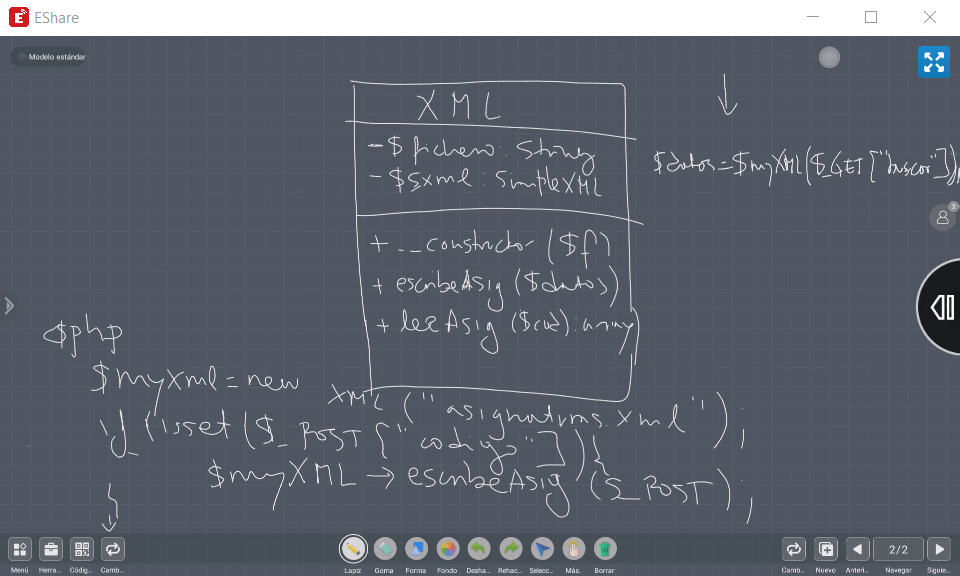 EShare
Modelo estándar
XML
- $fichero: String
- $sxml: SimpleXML
+ __constructor ($f)
+ escribeAsig ($datos)
+ leeAsig ($cod): array
$datos=$myXML($_GET["buscar"])
3
<$php
$myxml = new XML ("asignaturas.xml");
if (isset ($_POST ["codigo"])) {
$myXML → escribeAsig ($_POST);
Menú
Herra...
Códig...
Camb...
Lapiz
Goma
Forma
Fondo
Desha...
Rehac...
Selecc...
Más.
Borrar
Camb...
Nuevo
Anteri...
2/2
Navegar
Siguie...